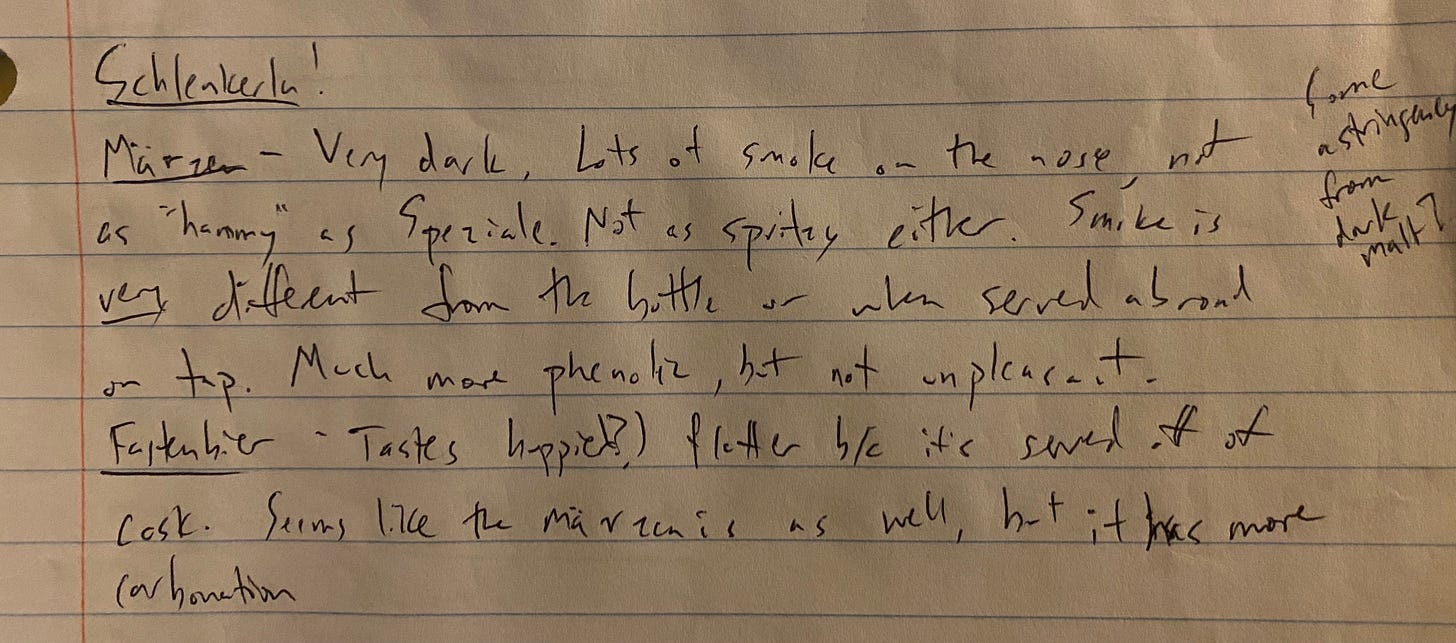 Schlenkerla!
Märzen - Very dark, Lots of smoke on the nose, not
as "hammy" as Speziale. Not as spritzy either. Smoke is
very different from the bottle or when served abroad
on tap. Much more phenolic, but not unpleasant.
Fastenbier - Tastes hoppier(?) flatter b/c it's served off of
cask. Seems like the märzen is as well, but it has more
carbonation
Some
astringency
from
dark
malt?